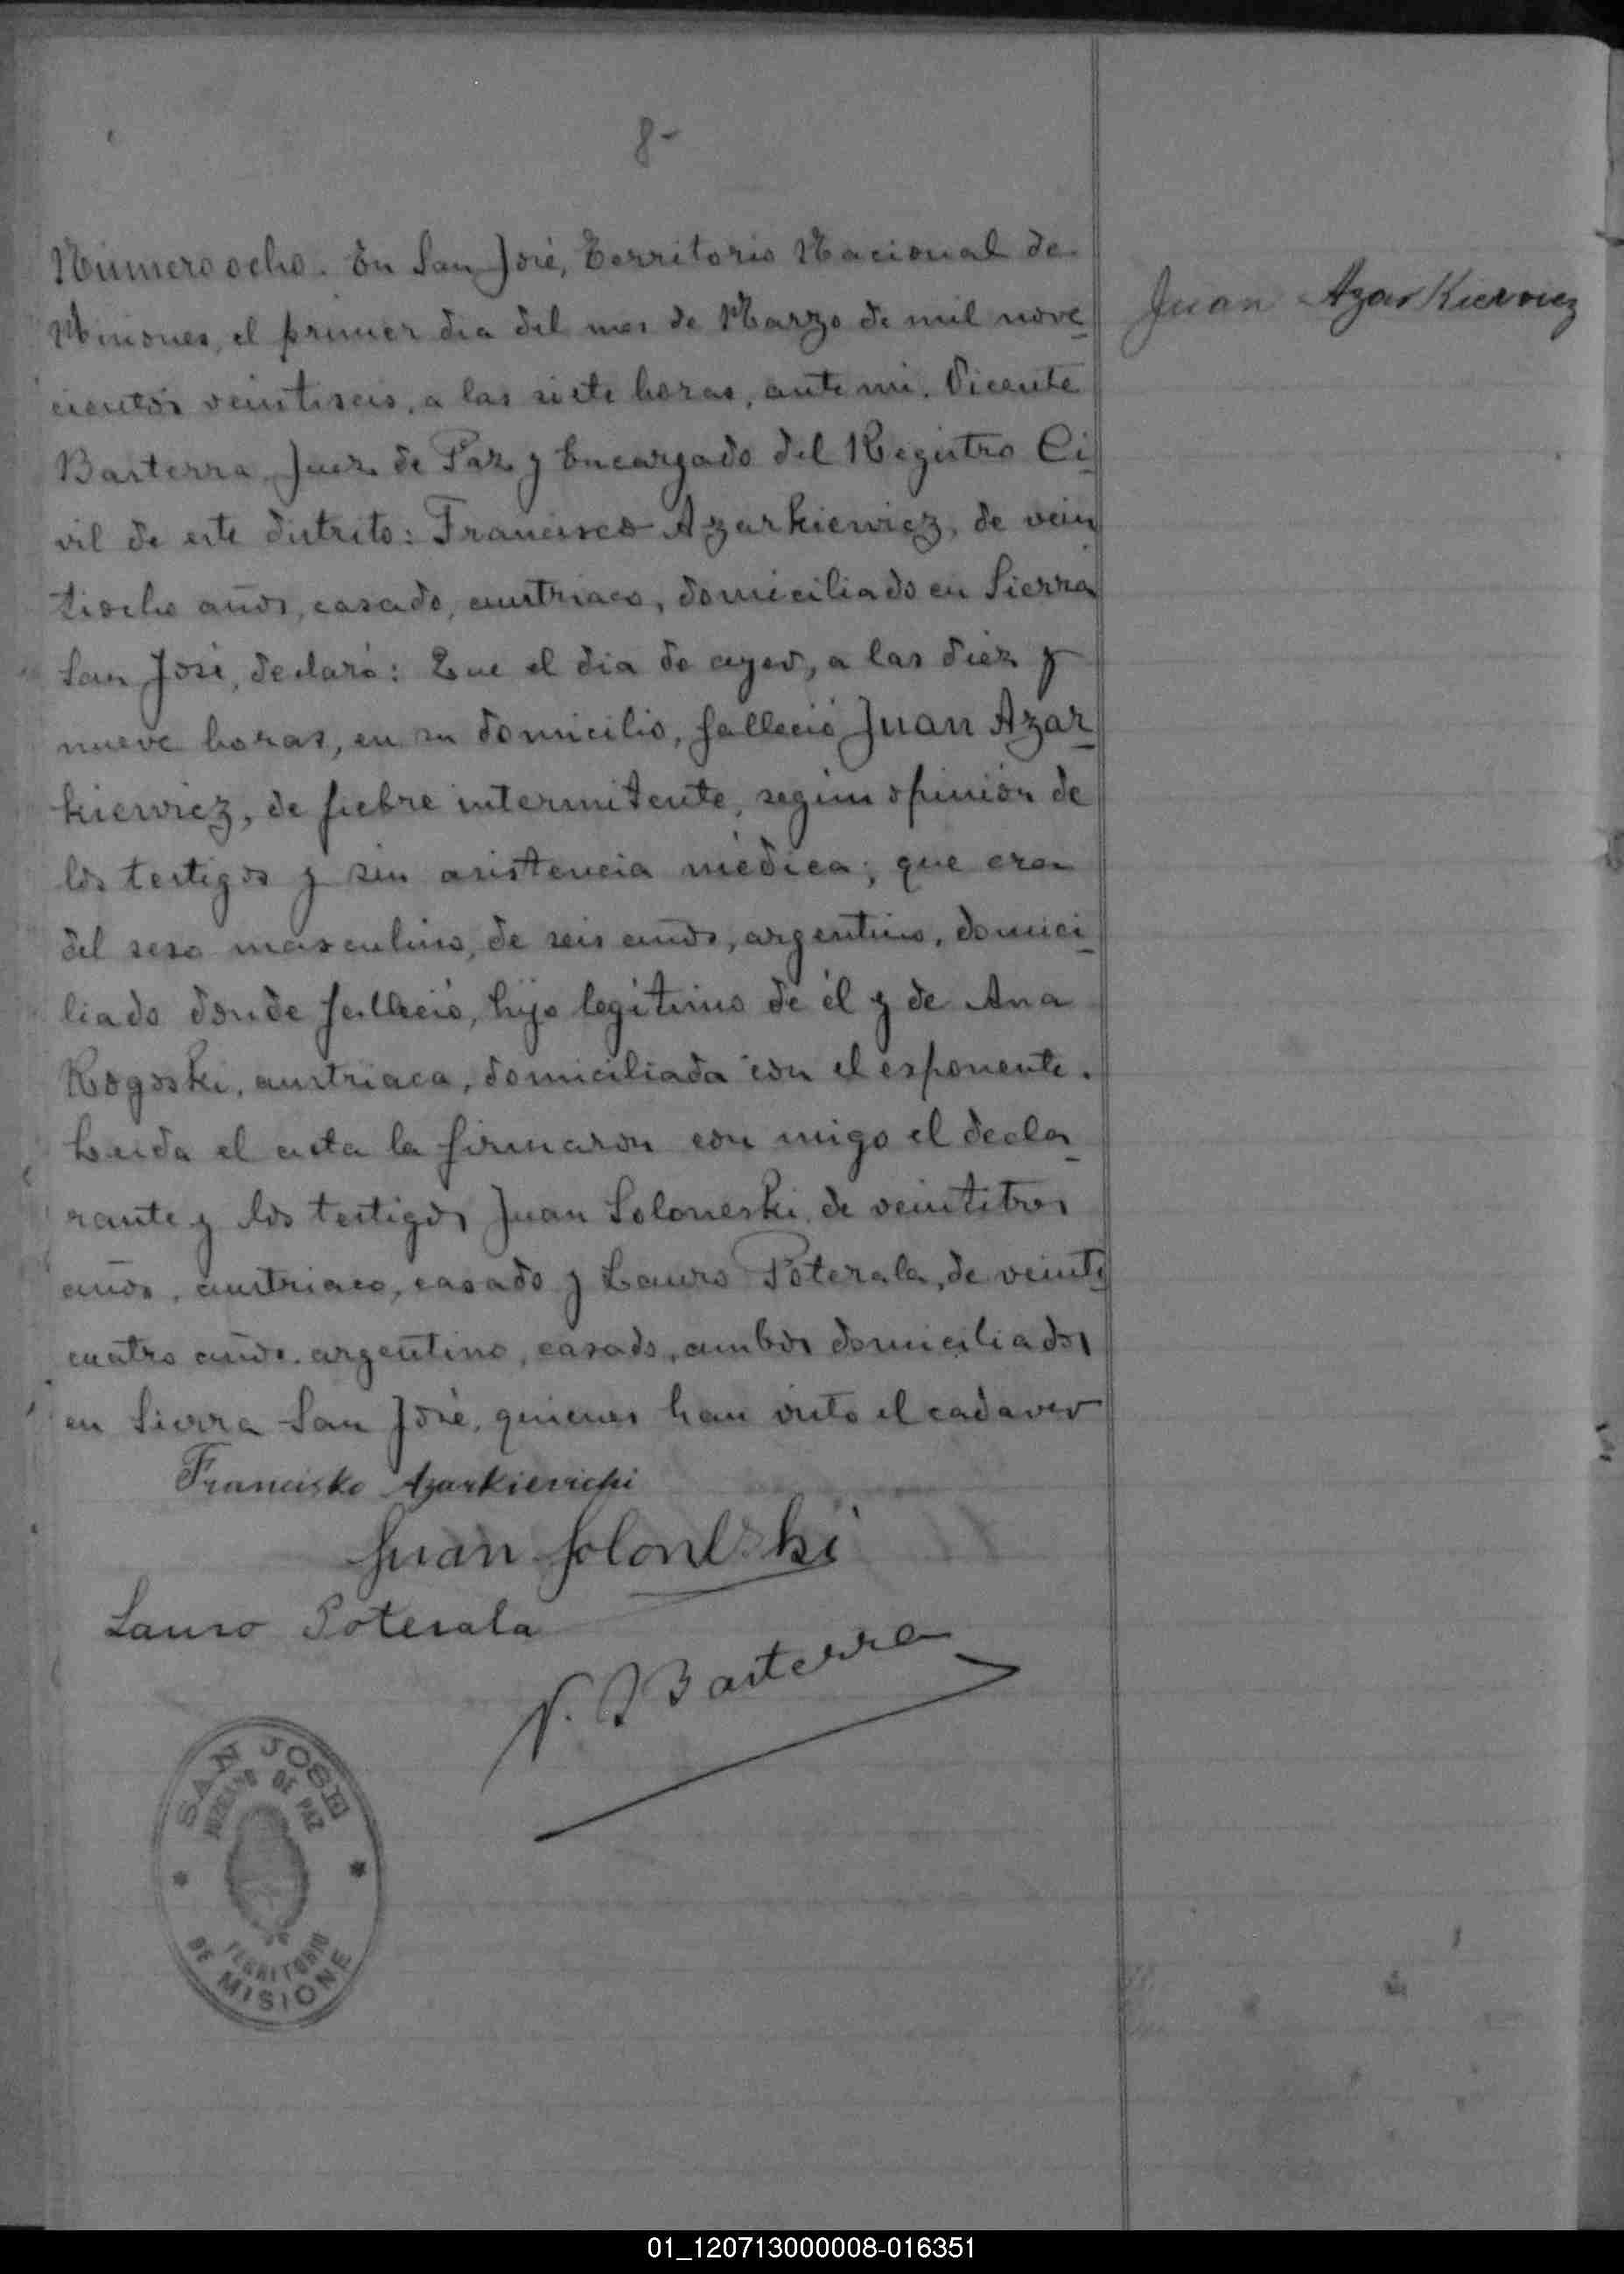 8-
Número ocho. En San José, Territorio Nacional de
Misiones, el primer dia del mes de Marzo de mil nove
cientos veintiseis, a las siete horas, ante mi, Vicente
Basterra, Juez de Paz y Encargado del Registro Ci
vil de este distrito: Francisco Azarkiewicz, de vein
tiocho años, casado, austriaco, domiciliado en Sierra
San José, declaró: Que el dia de ayer, a las diez y
nueve horas, en su domicilio, falleció Juan Azar
kiewicz, de fiebre intermitente, según opinión de
los testigos y sin asistencia médica; que era
del sexo masculino, de seis años, argentino, domici
liado donde falleció, hijo legítimo de él y de Ana
Rogoski, austriaca, domiciliada con el esponente.
Leida el acta la firmaron con migo el decla
rante y los testigos Juan Soloneski, de veintitres
años, austriaco, casado y Lauro Poterala, de veinti
cuatro años, argentino, casado, ambos domiciliados
en Sierra San José, quienes han visto el cadaver
Juan Azarkiewicz
Francisko Azarkievichi
Juan Soloneski
Lauro Poterala
V. Basterra
SAN JOSE
JUZGADO DE PAZ
TERRITORIO
DE MISIONE
01_120713000008-016351